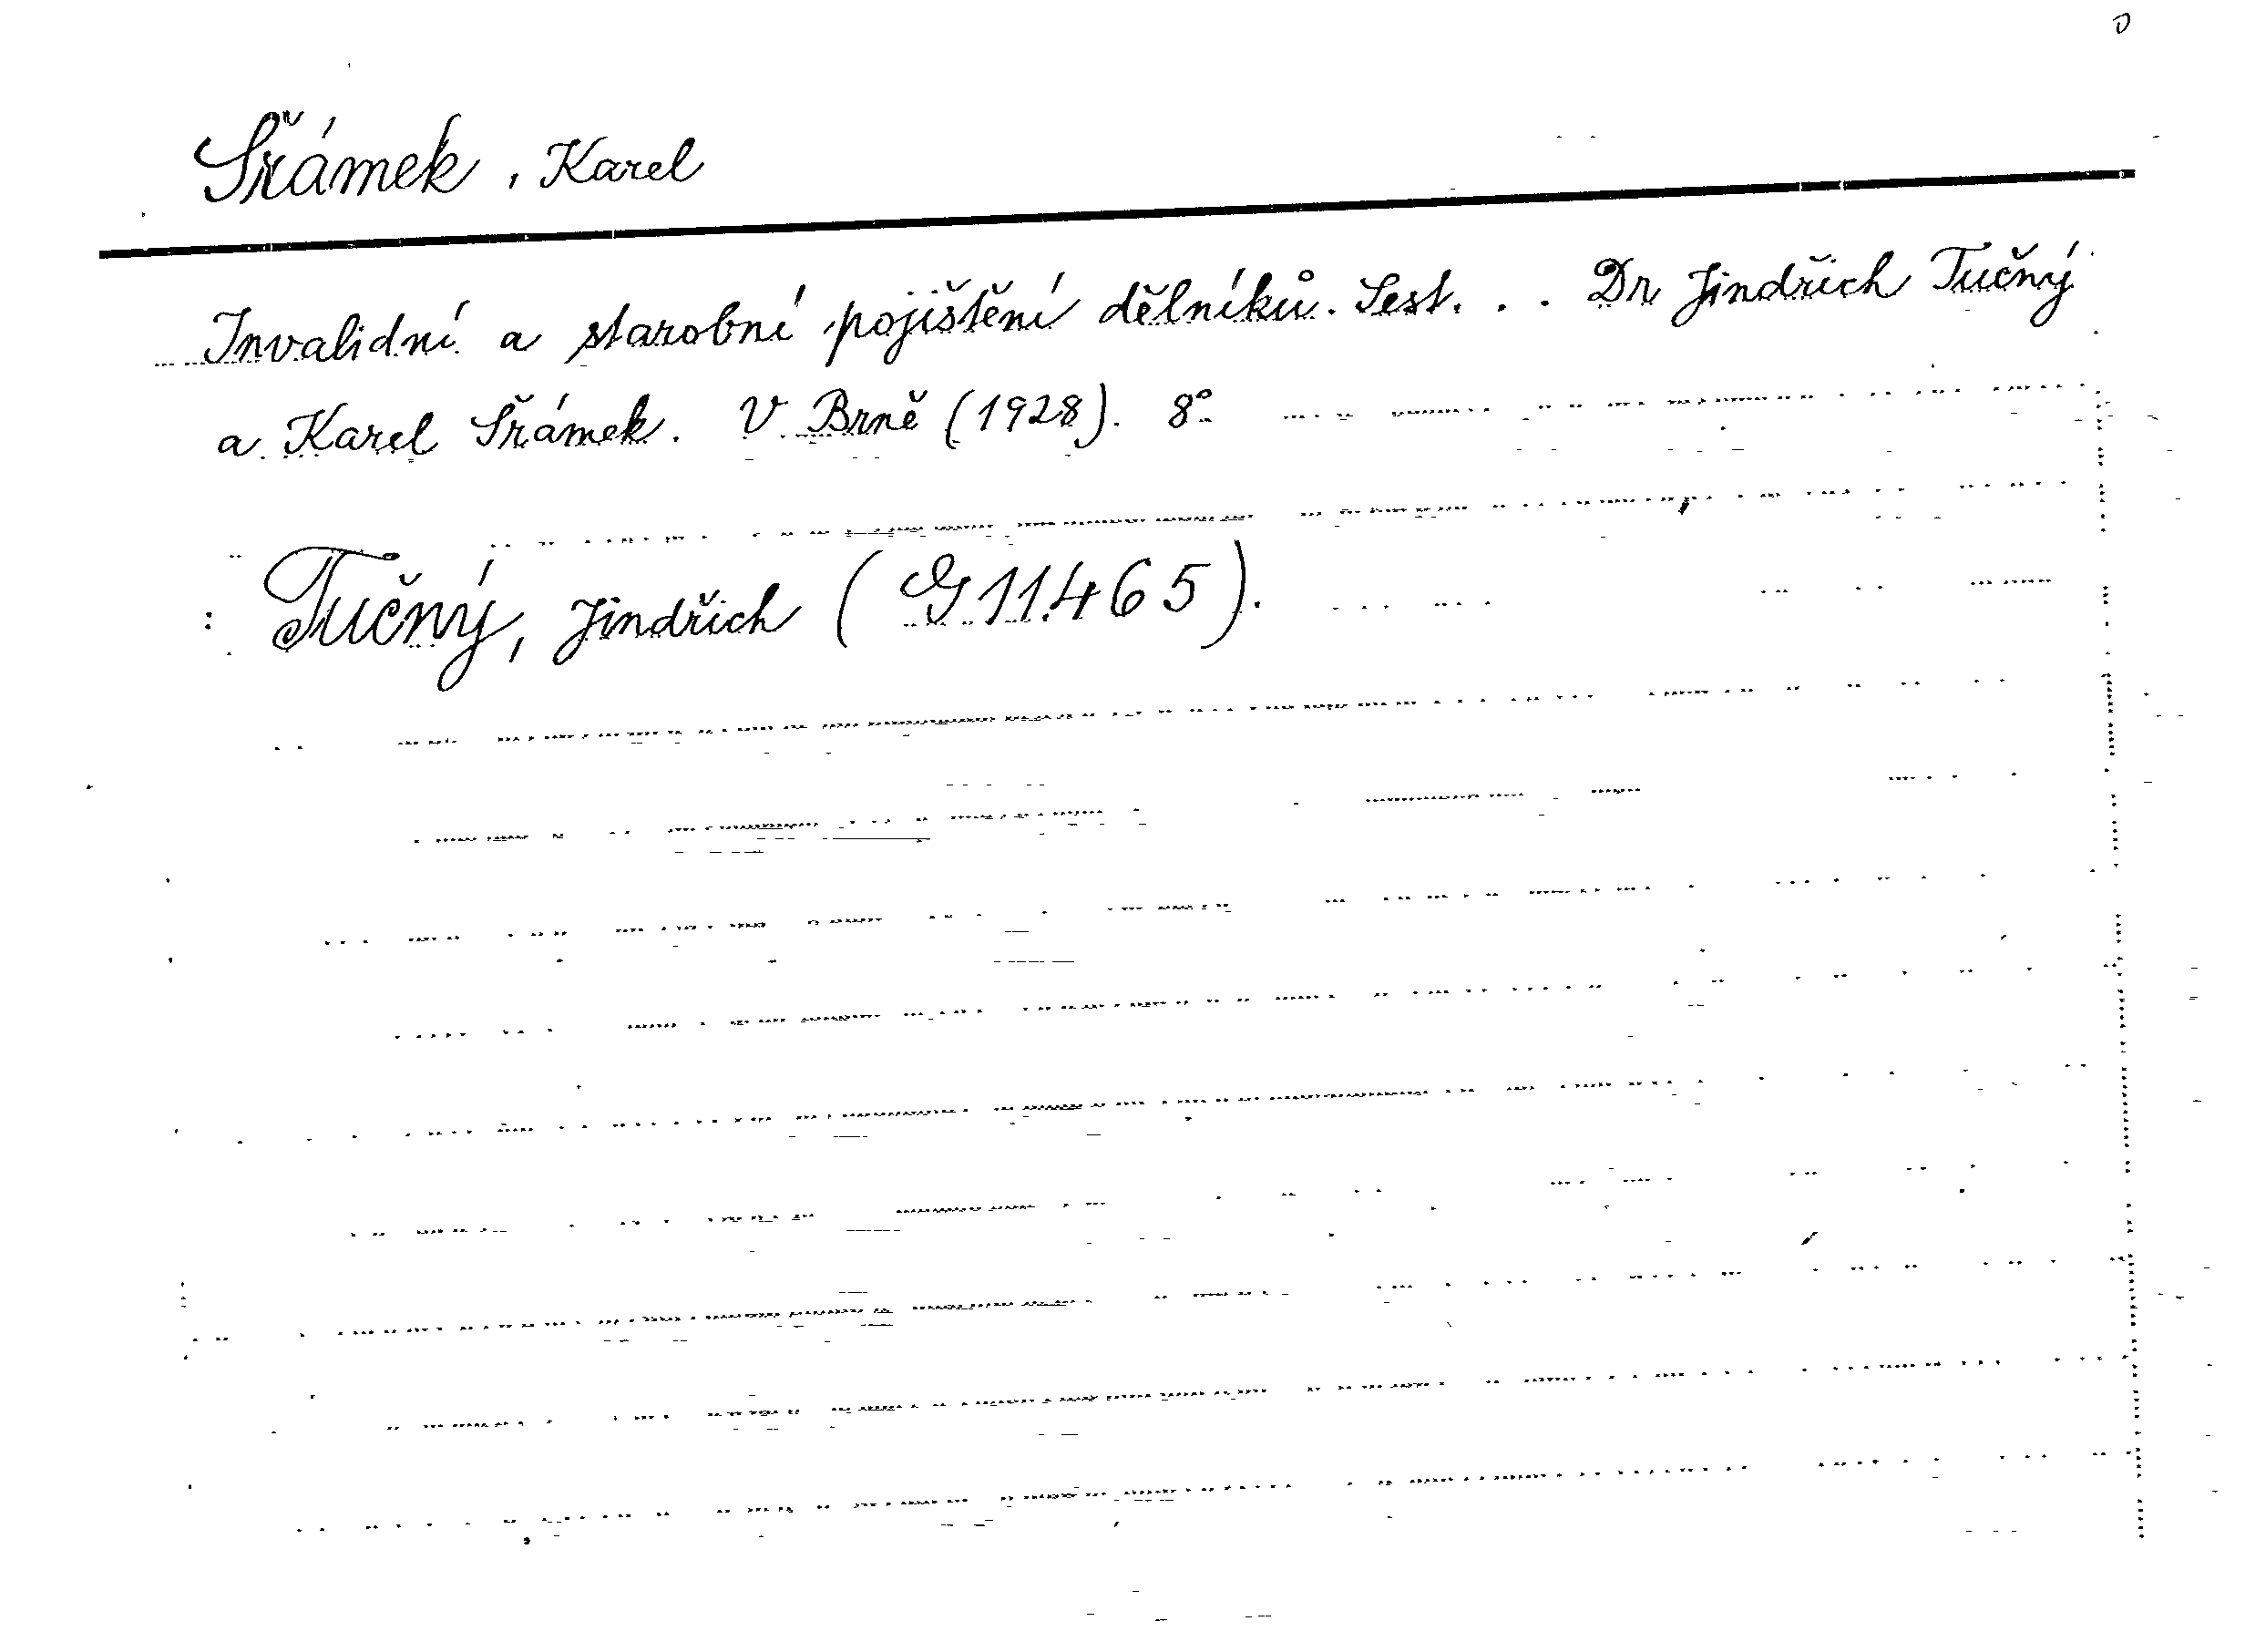 Šrámek, Karel
Invalidní a starobní pojištění dělníků. Sest. . . Dr Jindřich Tučný
a Karel Šrámek. V Brně (1928). 8°
Tučný, Jindřich (G 11.465).